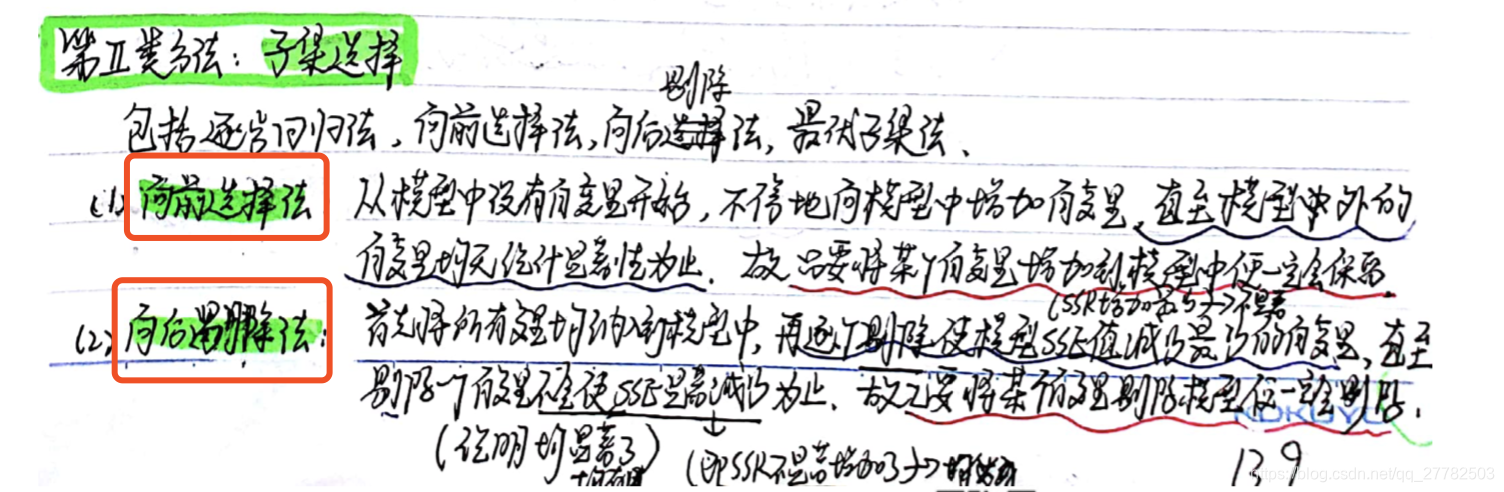 第Ⅱ类方法：子集选择
剔除
包括逐步回归法，向前选择法，向后选择法，最优子集法、
(1) 向前选择法 从模型中没有自变量开始，不停地向模型中增加自变量，直至模型中外的
自变量均无统计显著性为止．故只要将某个自变量增加到模型中便一定会保留
(SSR增加最多→不显著
(2) 向后剔除法：首先将所有变量均纳入到模型中，再逐个剔除使模型SSE值减少最少的自变量，直至
剔除一个自变量不会使SSE显著减少为止．故只要将某个自变量剔除模型便一定会剔除．
KOKUYO
(说明均显著了) (即SSR不显著增加了→ 139
https://blog.csdn.net/qq_27782503